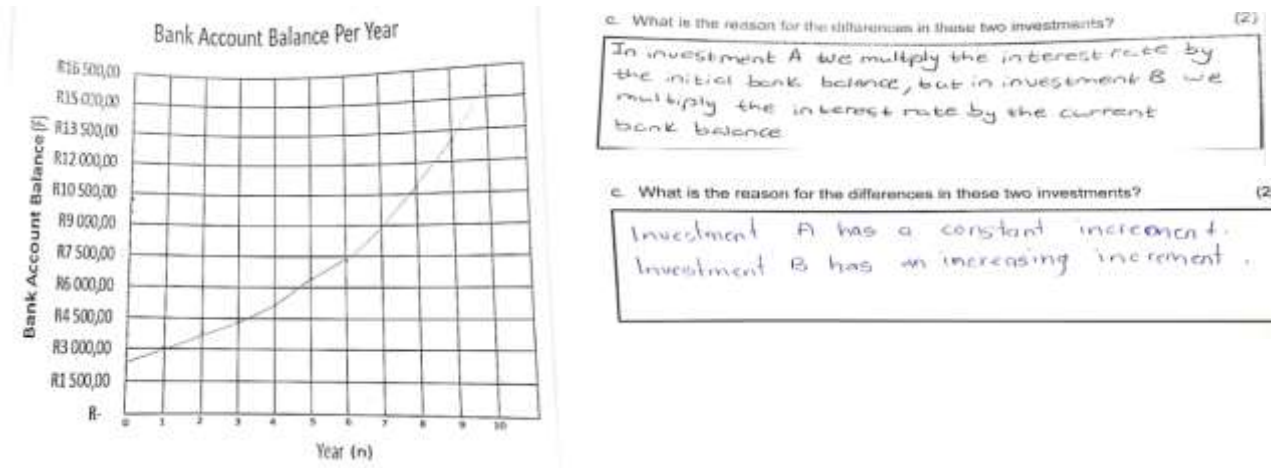 Bank Account Balance Per Year
Bank Account Balance (F)
R16 500,00
R15 000,00
R13 500,00
R12 000,00
R10 500,00
R9 000,00
R7 500,00
R6 000,00
R4 500,00
R3 000,00
R1 500,00
R-
0 1 2 3 4 5 6 7 8 9 10
Year (n)
c. What is the reason for the differences in these two investments? (2)
In investment A we multiply the interest rate by
the initial bank balance, but in investment B we
multiply the interest rate by the current
bank balance
c. What is the reason for the differences in these two investments? (2
Investment A has a constant increment.
Investment B has an increasing increment.